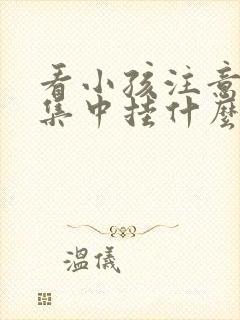 看小孩注意
集中挂什麼
溫儀